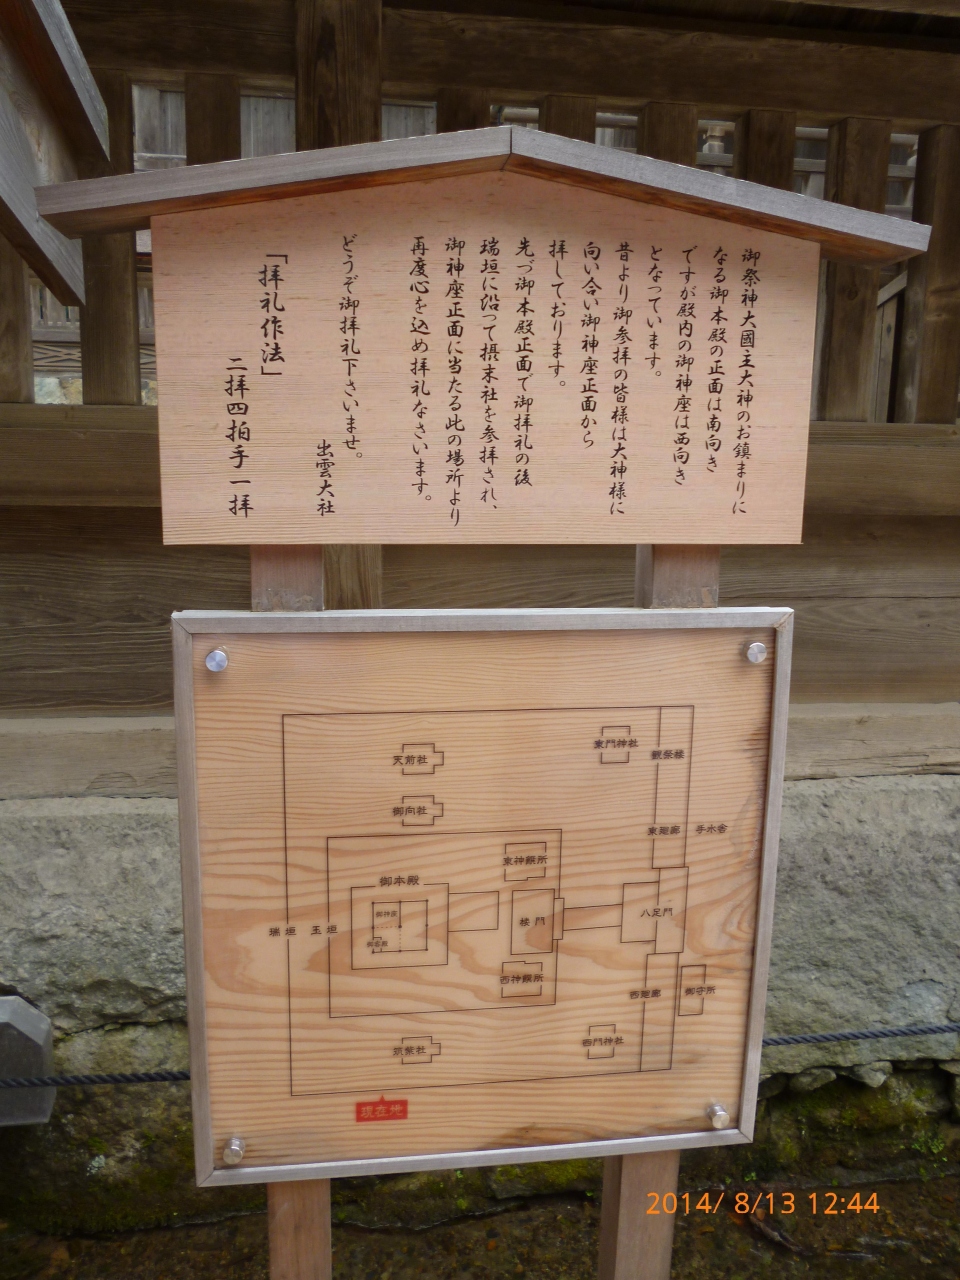 御祭神大國主大神のお鎮まりに
なる御本殿の正面は南向き
ですが殿内の御神座は西向き
となっています。
昔より御参拝の皆様は大神様に
向い合い御神座正面から
拝しております。
先づ御本殿正面で御拝礼の後
瑞垣に沿って摂末社を参拝され、
御神座正面に当たる此の場所より
再度心を込め拝礼なさいます。
どうぞ御拝礼下さいませ。
出雲大社
「拝礼作法」
二拝四拍手一拝
天前社
東門神社
観祭楼
御向社
東廻廊
手水舎
東神饌所
御本殿
御神座
楼門
八足門
瑞垣
玉垣
御客座
西神饌所
西廻廊
御守所
筑紫社
西門神社
現在地
2014/ 8/13 12:44